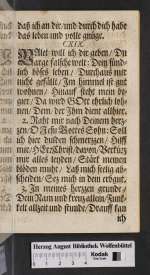 daß ich an dir und durch dich habe
das leben und volle gnüge.
CXIX.
VAlet will ich dir geben / Du
arge falsche welt: Dein sünd-
lich böses leben / Durchaus mir
nicht gefällt / Im himmel ist gut
wohnen / Hinauf steht mein be-
gier / Da wird GOtt ehrlich loh-
nen / Dem, der ihm dient allhier.
2. Raht mir nach deinem her-
zen / O JEsu Gottes Sohn: Soll
ich hier dulden schmertzen / Hilff
mir / HErr Christ / davon / Verkürz
mir alles leyden / Stärk meinen
blöden muht / Laß mich selig ab-
scheiden / Setz mich in dein erbgut.
3. In meines herzen grunde /
Dein Nam und kreuz allein / Fun-
kelt allzeit und stunde / Drauff kan
ich
Herzog August Bibliothek Wolfenbüttel
Kodak